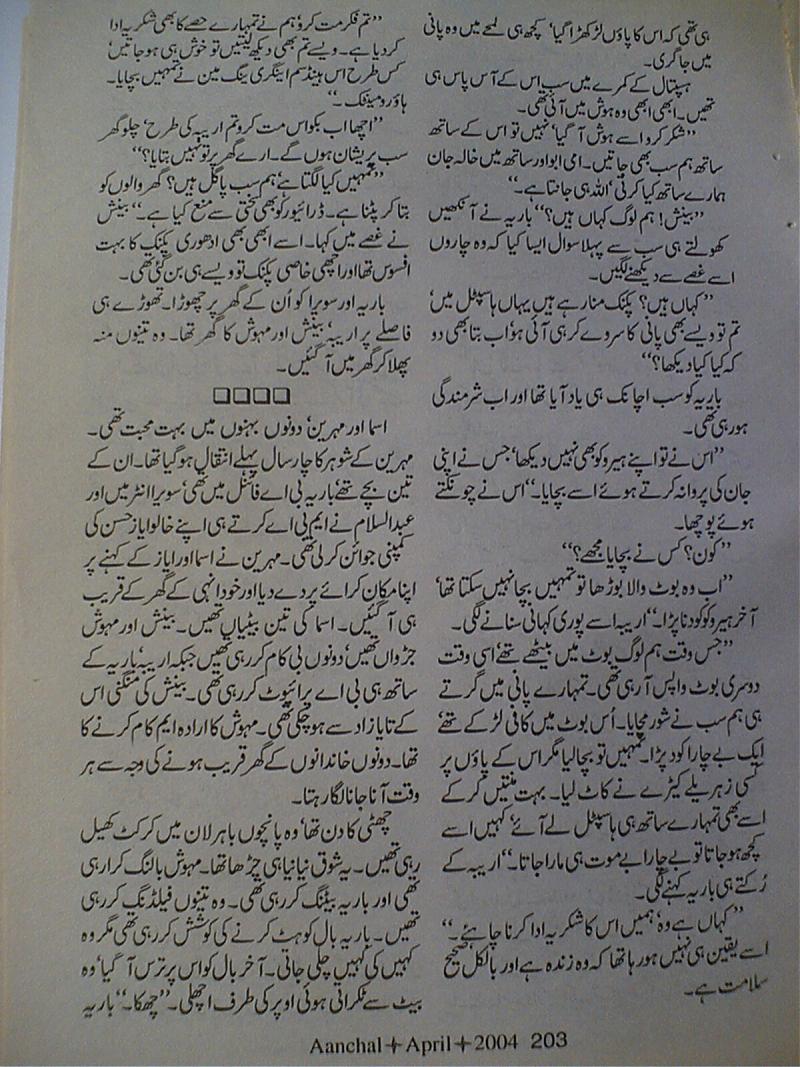 ہی تھی کہ اس کا پاؤں لڑکھڑا گیا‘ کچھ ہی لمحے میں وہ پانی
میں جا گری۔
ہسپتال کے کمرے میں سب اس کے آس پاس ہی
تھیں۔ ابھی ابھی وہ ہوش میں آئی تھی۔
”شکر کرو اسے ہوش آ گیا‘ نہیں تو اس کے ساتھ
ساتھ ہم سب بھی جاتیں۔ امی ابو اور ساتھ میں خالہ جان
ہمارے ساتھ کیا کرتی‘ اللہ ہی جانتا ہے۔“
”بینش! ہم لوگ کہاں ہیں؟“ باریہ نے آنکھیں
کھولتے ہی سب سے پہلا سوال ایسا کیا کہ وہ چاروں
اسے غصے سے دیکھنے لگیں۔
”کہاں ہیں؟ پکنک منا رہے ہیں یہاں ہاسپٹل میں‘
تم تو ویسے بھی پانی کا سروے کر ہی آئی ہو‘ اب بتا بھی دو
کہ کیا کیا دیکھا؟“
باریہ کو سب اچانک ہی یاد آیا تھا اور اب شرمندگی
ہو رہی تھی۔
”اس نے تو اپنے ہیرو کو بھی نہیں دیکھا‘ جس نے اپنی
جان کی پروا نہ کرتے ہوئے اسے بچایا۔“ اس نے چونکتے
ہوئے پوچھا۔
”کون؟ کس نے بچایا مجھے؟“
”اب وہ بوٹ والا بوڑھا تو تمہیں بچا نہیں سکتا تھا‘
آخر ہیرو کو کودنا پڑا۔“ اریبہ اسے پوری کہانی سنانے لگی۔
”جس وقت ہم لوگ بوٹ میں بیٹھے تھے‘ اسی وقت
دوسری بوٹ واپس آ رہی تھی۔ تمہارے پانی میں گرتے
ہی ہم سب نے شور مچایا۔ اُس بوٹ میں کافی لڑکے تھے‘
ایک بے چارا کود پڑا۔ تمہیں تو بچا لیا مگر اس کے پاؤں پر
کسی زہریلے کیڑے نے کاٹ لیا۔ بہت منتیں کر کے
اسے بھی تمہارے ساتھ ہی ہاسپٹل لے آئے‘ کہیں اسے
کچھ ہو جاتا تو بے چارا بے موت ہی مارا جاتا۔“ اریبہ کے
رُکتے ہی باریہ کہنے لگی۔
”کہاں ہے وہ‘ ہمیں اس کا شکریہ ادا کرنا چاہئے۔“
اسے یقین ہی نہیں ہو رہا تھا کہ وہ زندہ ہے اور بالکل صحیح
سلامت ہے۔
”تم فکر مت کرو‘ ہم نے تمہارے حصے کا بھی شکریہ ادا
کر دیا ہے۔ ویسے تم بھی دیکھ لیتیں تو خوش ہی ہو جاتیں‘
کس طرح اس ہینڈسم اینگری ینگ مین نے تمہیں بچایا۔
ہاؤ رومینٹک۔“
”اچھا اب بکواس مت کرو تم اریبہ کی طرح‘ چلو گھر
سب پریشان ہوں گے۔ ارے گھر پر تو نہیں بتایا؟“
”تمہیں کیا لگتا ہے‘ ہم سب پاگل ہیں؟ گھر والوں کو
بتا کر پٹنا ہے۔ ڈرائیور کو بھی سختی سے منع کیا ہے۔“ بینش
نے غصے میں کہا۔ اسے ابھی بھی ادھوری پکنک کا بہت
افسوس تھا اور اچھی خاصی پکنک تو ویسے ہی بن گئی تھی۔
باریہ اور سویرا کو اُن کے گھر پر چھوڑا۔ تھوڑے ہی
فاصلے پر اریبہ‘ بینش اور مہوش کا گھر تھا۔ وہ تینوں منہ
پھلا کر گھر میں آ گئیں۔
❏❏❏❏
اسما اور مہرین‘ دونوں بہنوں میں بہت محبت تھی۔
مہرین کے شوہر کا چار سال پہلے انتقال ہو گیا تھا۔ ان کے
تین بچے تھے‘ باریہ بی اے فائنل میں تھی‘ سویرا انٹر میں اور
عبدالسلام نے ایم بی اے کرتے ہی اپنے خالو ایاز حسن کی
کمپنی جوائن کر لی تھی۔ مہرین نے اسما اور ایاز کے کہنے پر
اپنا مکان کرائے پر دے دیا اور خود انہی کے گھر کے قریب
ہی آ گئیں۔ اسما کی تین بیٹیاں تھیں۔ بینش اور مہوش
جڑواں تھیں‘ دونوں بی کام کر رہی تھیں جبکہ اریبہ‘ باریہ کے
ساتھ ہی بی اے پرائیوٹ کر رہی تھی۔ بینش کی منگنی اس
کے تایا زاد سے ہو چکی تھی۔ مہوش کا ارادہ ایم کام کرنے کا
تھا۔ دونوں خاندانوں کے گھر قریب ہونے کی وجہ سے ہر
وقت آنا جانا لگا رہتا۔
چھٹی کا دن تھا‘ وہ پانچوں باہر لان میں کرکٹ کھیل
رہی تھیں۔ یہ شوق نیا نیا ہی چڑھا تھا۔ مہوش بالنگ کرا رہی
تھی اور باریہ بیٹنگ کر رہی تھی۔ وہ تینوں فیلڈنگ کر رہی
تھیں۔ باریہ بال کو ہٹ کرنے کی کوشش کر رہی تھی مگر وہ
کہیں کی کہیں چلی جاتی۔ آخر بال کو اس پر ترس آ گیا‘ وہ
بیٹ سے ٹکراتی ہوئی اوپر کی طرف اچھلی۔ ”چھکا۔“ باریہ
Aanchal✦April✦2004 203